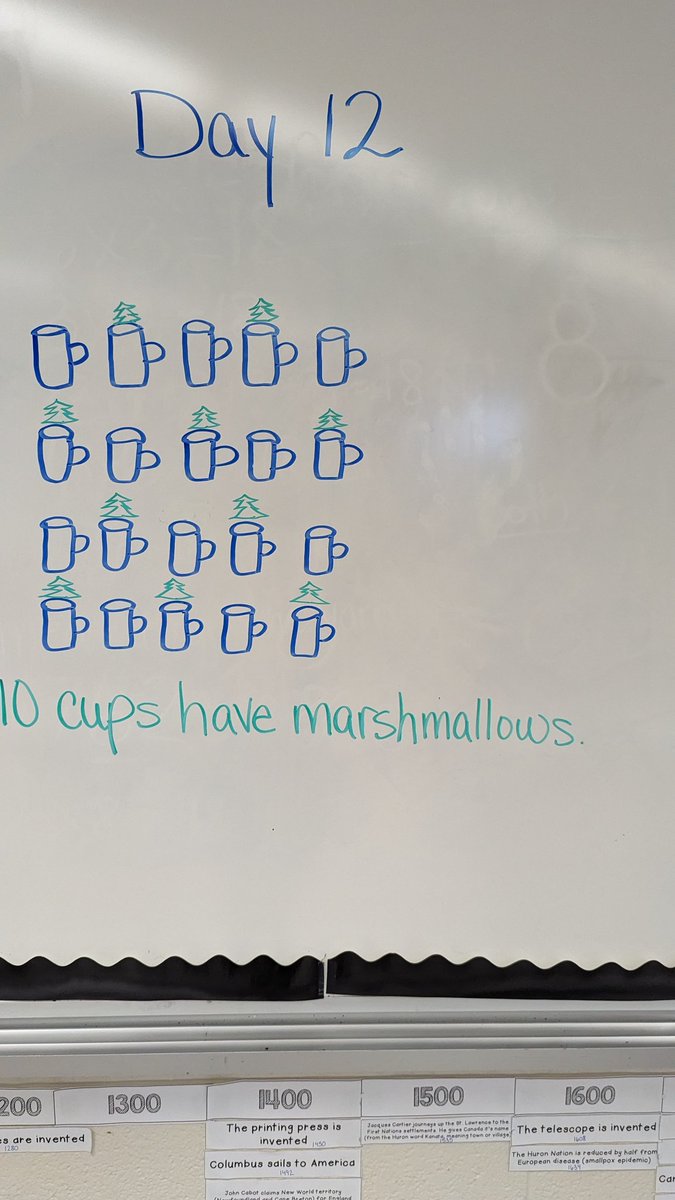 Day 12
10 cups have marshmallows.
200
1300
1400
1500
1600
are invented
1280
The printing press is
invented
1450
Columbus sails to America
1492
John Cabot claims New World territory
Jacques Cartier journeys up the St. Lawrence to the
First Nations settlements. He gives Canada it's name
(from the Huron word Kanata, meaning town or village)
The telescope is invented
1608
The Huron Nation is reduced by half from
European disease (smallpox epidemic)
1639